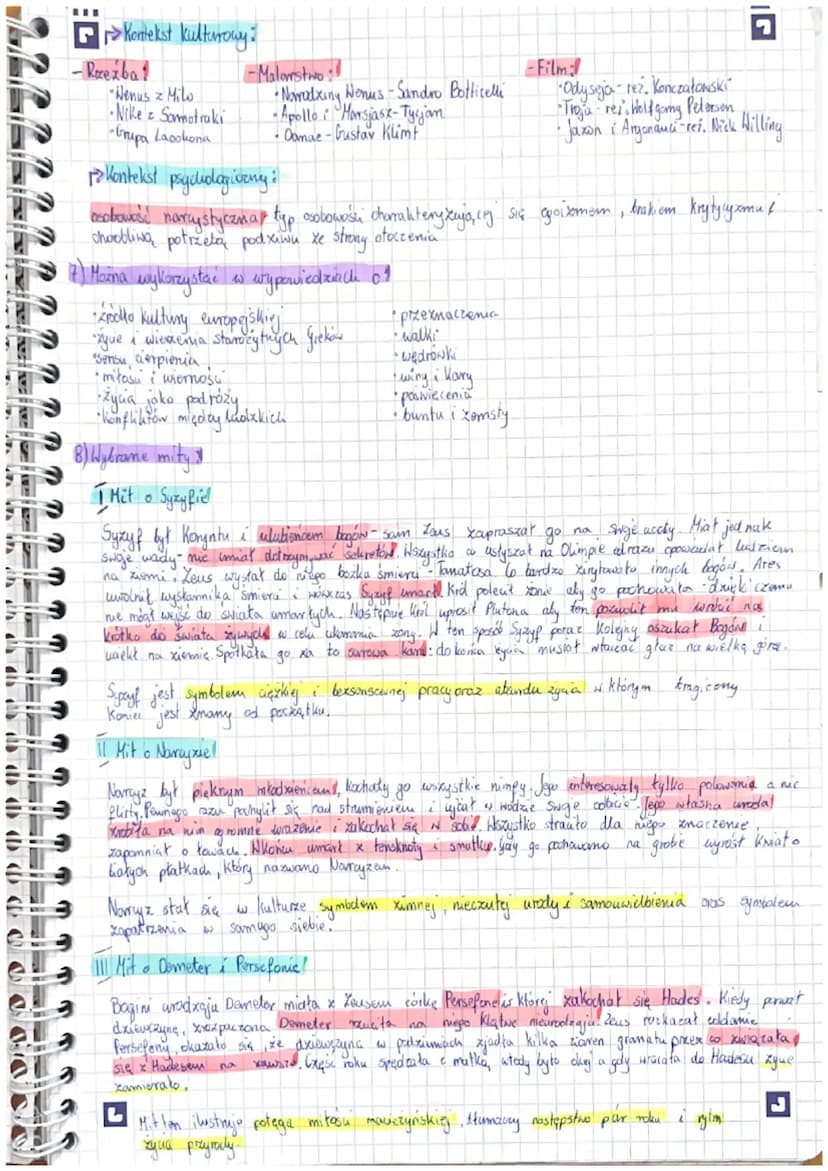 Kontekst kulturowy:
- Rzeźba:
• Wenus z Milo
• Nike z Samotraki
• Grupa Laookona
- Malarstwo:
• Narodziny Wenus - Sandro Botticelli
• Apollo i Marsjasz - Tycjan
• Danae - Gustav Klimt
- Film:
• Odyseja - reż. Konczałowski
• Troja - reż. Wolfgang Peterson
• Jazon i Argonauci - reż. Nick Willing
Kontekst psychologiczny:
osobowość narcystyczna, typ osobowości charakteryzującej się egoizmem, brakiem krytycyzmu i
chorobliwą potrzebą podziwu ze strony otoczenia
7) Można wykorzystać w wypowiedziach o:
• źródło kultury europejskiej
• życie i wierzenia starożytnych Greków
• sensu cierpienia
• miłości i wierności
• życia jako podróży
• konfliktów między ludzkich
• przeznaczenia
• walki
• wędrówki
• winy i kary
• poświęcenia
• buntu i zemsty
8) Wybrane mity
I Mit o Syzyfie
Syzyf był Koryntu i ulubieńcem bogów - sam Zeus zapraszał go na swoje uczty. Miał jednak
swoje wady - nie umiał dotrzymywać sekretów. Wszystko co usłyszał na Olimpie od razu opowiadał ludziom
na ziemi. Zeus wysłał do niego bożka śmierci - Tanatosa. Co bardzo zirytowało innych bogów. Ares
uwolnił wysłannika śmierci i wówczas Syzyf umarł. Król polecił żonie aby go pochowała - dzięki czemu
nie mógł wejść do świata umarłych. Następnie król uprosił Plutona aby ten pozwolił mu wrócić na
krótko do świata żywych w celu ukarania żony. W ten sposób Syzyf poraz kolejny oszukał Bogów i
uciekł na ziemię. Spotkała go za to surowa kara: do końca życia musiał wtaczać głaz na wielką górę.
Syzyf jest symbolem ciężkiej i bezsensownej pracy oraz w którym tragiczny
koniec jest znany od początku.
II Mit o Narcyzie
Narcyz był pięknym młodzieńcem, kochały go wszystkie nimfy. Jego interesowały tylko polowania a nic
flirty. Pewnego razu pochylił się nad strumieniem i ujrzał w wodzie swoje odbicie. Jego własna uroda
zrobiła na nim ogromne wrażenie i zakochał się w sobie. Wszystko straciło dla niego znaczenie,
zapomniał o łowach. Wkońcu umarł z tęsknoty i smutku. Gdy go pochowano na grobie wyrósł kwiat o
białych płatkach, który nazwano Narcyzem.
Narcyz stał się w kulturze symbolem zimnej, nieczułej urody i samouwielbienia oraz symbolem
zapatrzenia w samego siebie.
III Mit o Demeter i Persefonie
Bogini urodzaju Demeter miała z Zeusem córkę Persefonę w której zakochał się Hades. Kiedy porwał
dziewczynę, zrozpaczona Demeter rzuciła na niego klątwę nieurodzaju. Zeus rozkazał oddanie
Persefony, okazało się, że dziewczyna w podziemiach zjadła kilka ziaren granatu przez co związała
się z Hadesem na zawsze. Część roku spędzała z matką, wtedy było okej a gdy wracała do Hadesu życie
zamierało.
Mit ten ilustruje potęgę miłości macierzyńskiej, tłumaczy następstwo pór roku i rytm
życia przyrody.